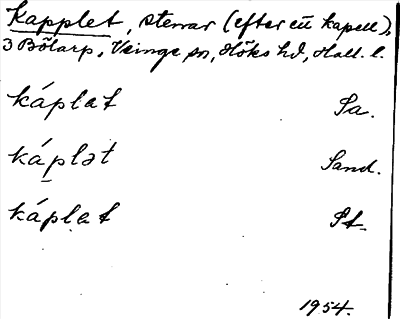 Kapplet, stenar (efter ett kapell),
3 Bölarp, Veinge sn, Höks hd, Hall. l.
káplat Sa.
káplət Sand.
káplet St.
1954.